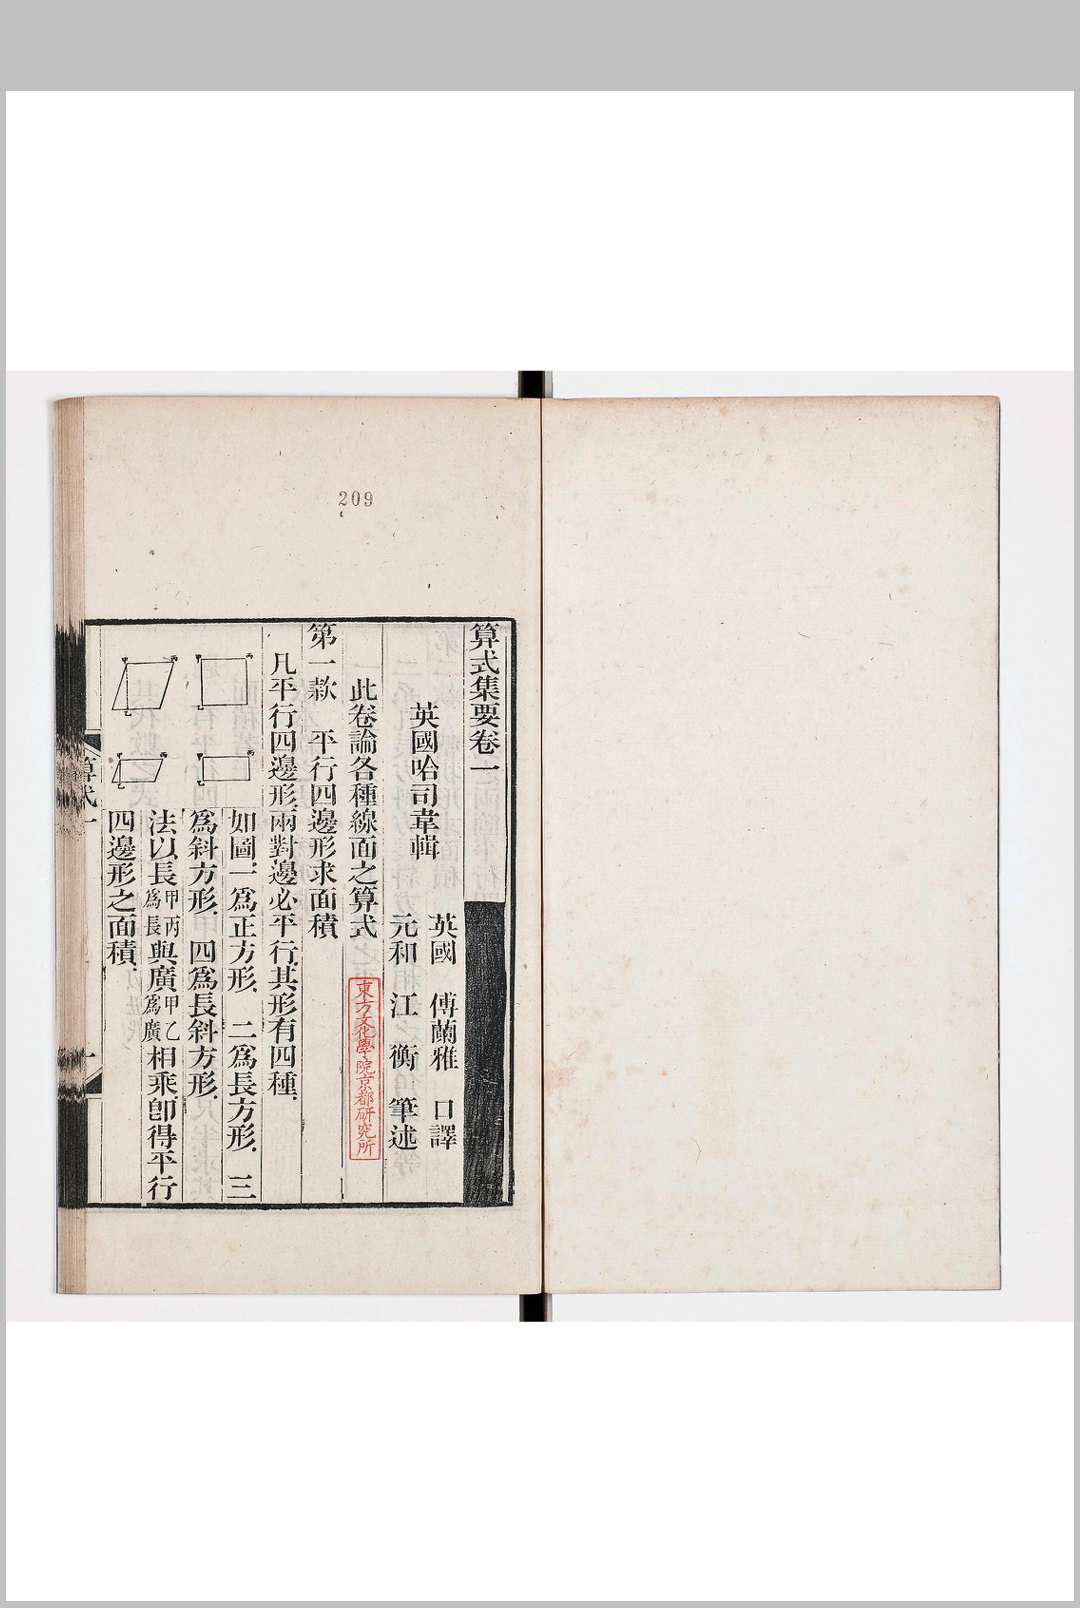 209
算式集要卷一
英國哈司韋輯
英國　傅蘭雅　口譯
元和　江　衡　筆述
此卷論各種線面之算式
東方文化學院京都研究所
第一款　平行四邊形求面積
凡平行四邊形兩對邊必平行其形有四種
如圖一爲正方形　二爲長方形　三
爲斜方形　四爲長斜方形
法以長甲丙爲長與廣甲乙爲廣相乘卽得平行
四邊形之面積
算式一